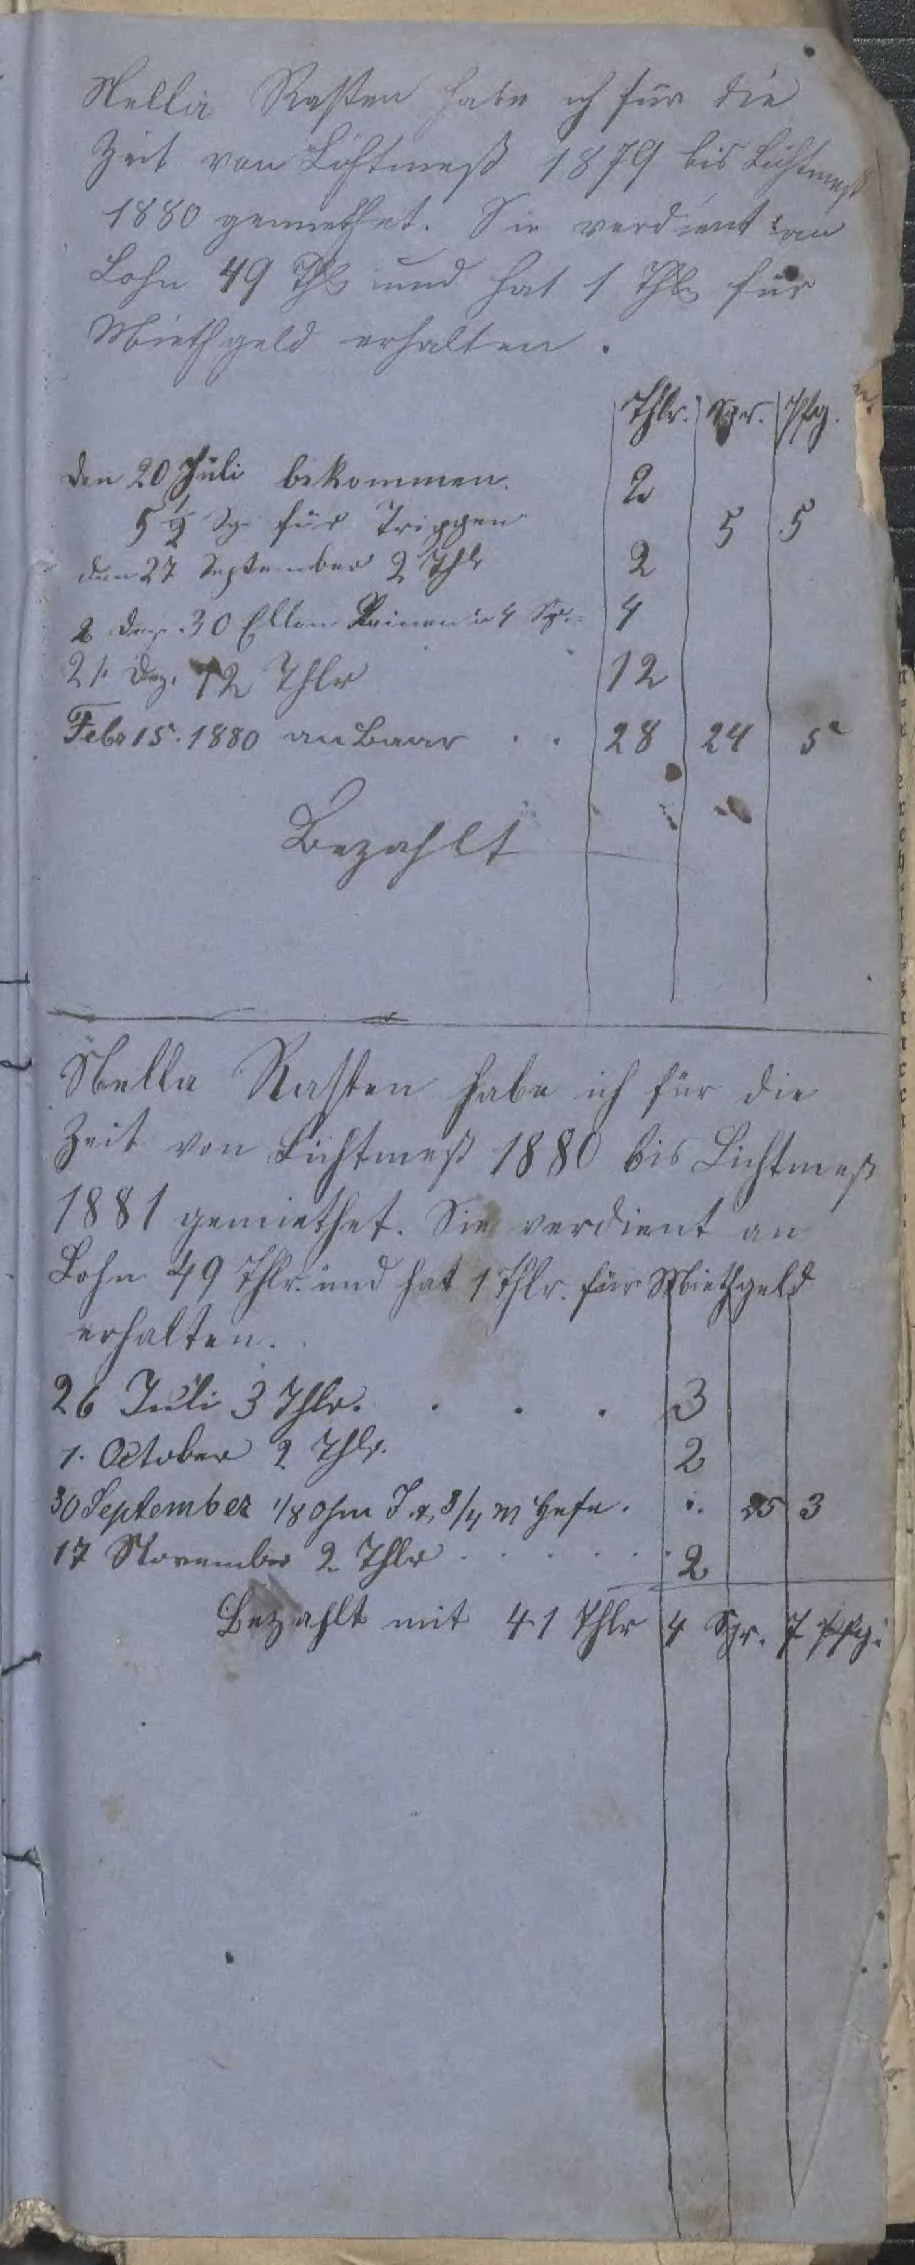 Stella Rasten habe ich für die
Zeit von Lichtmeß 1879 bis Lichtmeß
1880 gemiethet. Sie verdient an
Lohn 49 Thlr und hat 1 Thlr für
Miethgeld erhalten.
Thlr. Sgr. Pfg.
den 20 Juli bekommen. 2
5 1/2 Sgr für Trippen 5 5
den 27 September 2 Thlr 2
2 Dez. 30 Ellen Leinen a 4 Sgr. 4
21. Dez. 12 Thlr 12
Febr 15. 1880 an Baar . . 28 24 5
Bezahlt
Stella Rasten habe ich für die
Zeit von Lichtmeß 1880 bis Lichtmeß
1881 gemiethet. Sie verdient an
Lohn 49 Thlr. und hat 1 Thlr. für Miethgeld
erhalten.
26 Juli 3 Thlr. . . . 3
1. October 2 Thlr. 2
30 September 1/8 Ohm 3/4 Hefe. 25 3
17 November 2 Thlr . . . . . . 2
Bezahlt mit 41 Thlr 4 Sgr. 7 Pfg.